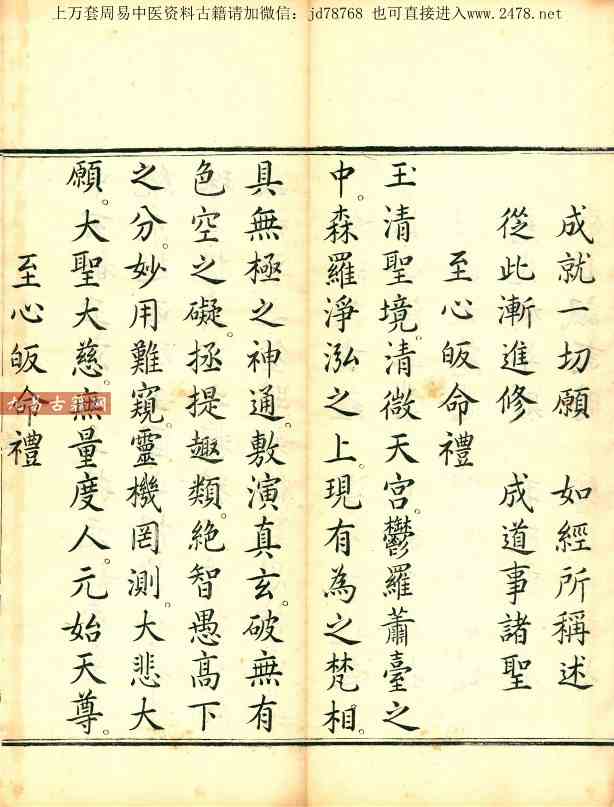 上万套周易中医资料古籍请加微信：jd78768 也可直接进入www.2478.net
成就一切願 如經所稱述
從此漸進修 成道事諸聖
至心皈命禮
玉清聖境。清微天宮。鬱羅蕭臺之
中。森羅淨泓之上。現有為之梵相。
具無極之神通。敷演真玄。破無有
色空之礙。拯提趣類。絕智愚高下
之分。妙用難窺。靈機罔測。大悲大
願。大聖大慈。無量度人。元始天尊。
至心皈命禮
九易古籍网